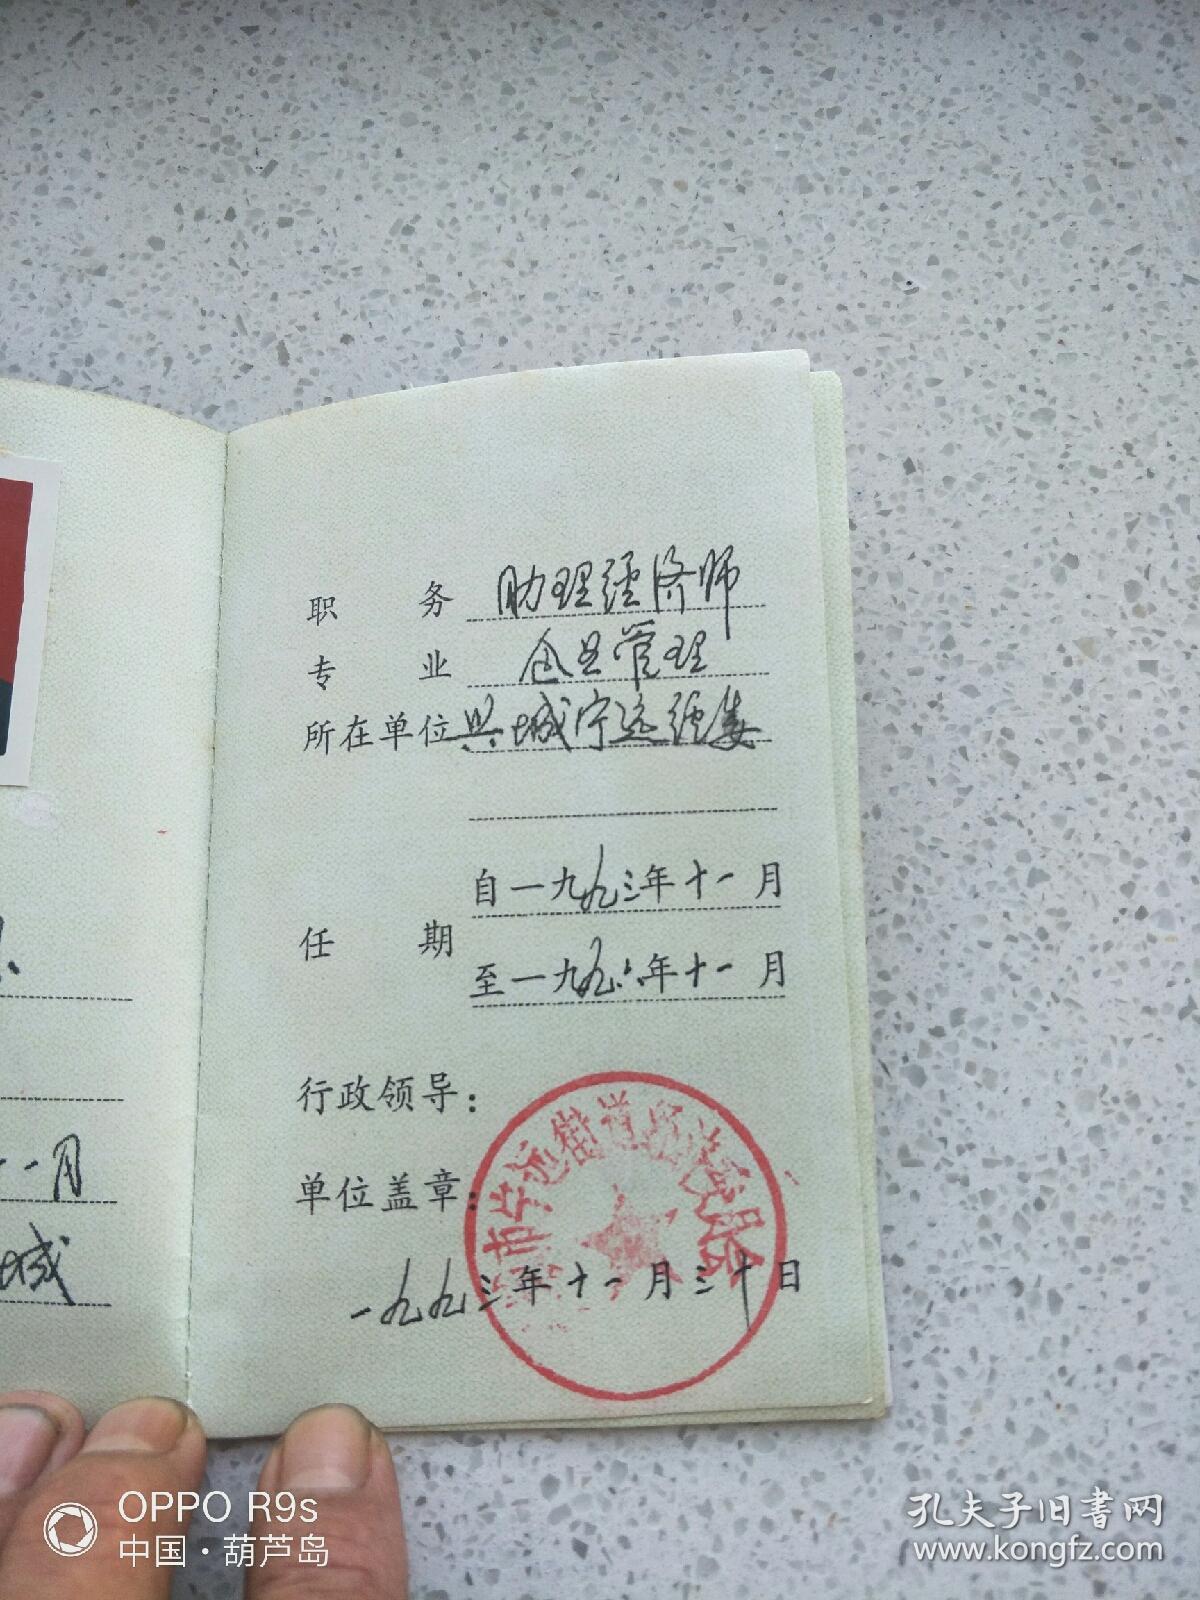 职务 助理经济师
专业 企业管理
所在单位 兴城宁远经委
自一九九三年十一月
任期
至一九九六年十一月
行政领导：
单位盖章：
市宁远街道经济委员会
一九九三年十一月三十日
一月
城
OPPO R9s
中国·葫芦岛
孔夫子旧书网
www.kongfz.com